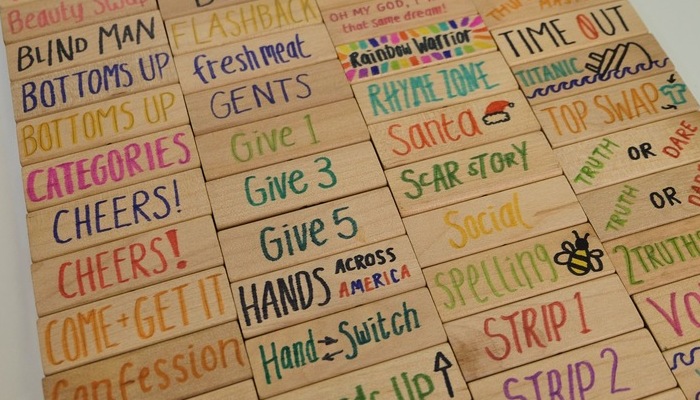 Beauty Swap
BLIND MAN
BOTTOMS UP
BOTTOMS UP
CATEGORIES
CHEERS!
CHEERS!
COME + GET IT
Confession
FLASHBACK
fresh meat
GENTS
Give 1
Give 3
Give 5
HANDS ACROSS
AMERICA
Hand Switch
Up
OH MY GOD, I
that same dream!
Rainbow Warrior
RHYME ZONE
Santa
SCAR STORY
Social
spelling
STRIP 1
STRIP 2
TIME OUT
TITANIC
TOP SWAP
TRUTH OR DARE
TRUTH OR
2 TRUTHS